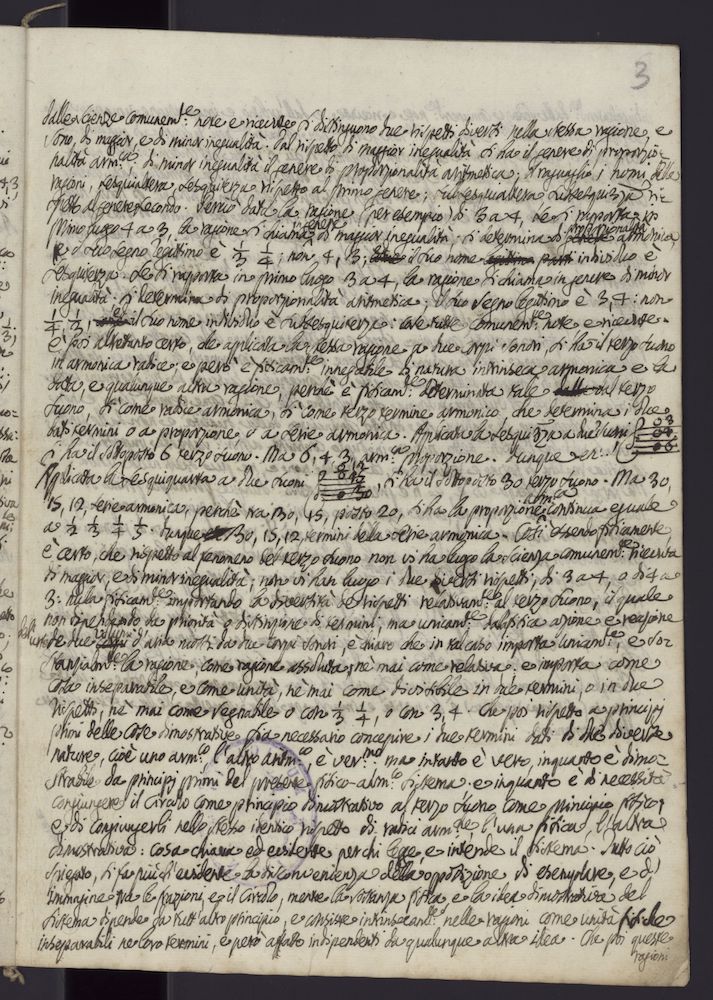 3
dalle scienze comunem.te note e ricevute si distinguono due rispetti diversi nella stessa ragione, e
sono, di maggior, e di minor inequalità. Dal rispetto di maggior inequalità si ha il genere di proporzio-
nalità arm.ca; di minor inequalità il genere di proporzionalità aritmetica; i nomi delle
ragioni, sesquialtera, sesquiterza rispetto al primo genere; subsesquialtera subsesquiterza ri-
spetto al genere secondo. data la ragione (per esempio) di 3 a 4, se si rapporta in
primo luogo 4 a 3, la ragione si chiama in genere di maggior inequalità: si determina di proporzionalità armonica,
e il suo segno legittimo è 1/3 1/4; non 4, 3; il suo nome individuo è
sesquiterza. Se si rapporta in primo luogo 3 a 4, la ragione si chiama in genere di minor
inequalità: si determina di proporzionalità aritmetica; il suo segno legittimo è 3, 4: non
1/4, 1/3; il suo nome individuo è subsesquiterza: cose tutte comunem.te note e ricevute.
È poi altretanto certo, che applicata la stessa ragione a due corpi sonori, si ha il terzo suono
in armonica radice, e però è fisicam.te innegabile di natura intrinseca armonica e la
data, e qualunque altra ragione, perchè è fisicam.te determinata tale dal terzo
suono, si come radice armonica, si come terzo termine armonico, che determina i due
dati termini o a proporzione, o a serie armonica. Applicata la sesquiterza a due suoni
si ha il sottoposto 6 terzo suono. Ma 6, 4, 3, arm.ca proporzione. Dunque
Applicata la sesquiquarta a due suoni, si ha il sottoposto 30 terzo suono. Ma 30,
15, 12, serie armonica, perchè tra 30, 15, posto 20, si ha la proporzione arm.ca continua eguale
a 1/2 1/3 1/4 1/5. Dunque 30, 15, 12, termini della serie armonica. Così essendo fisicamente
è certo, che rispetto al fenomeno del terzo suono non vi ha luogo la scienza comunem.te ricevuta
di maggior, e di minor inequalità; non vi han luogo i due diversi rispetti, di 3 a 4, o di 4 a
3: nulla fisicam.te importando la diversità de' rispetti relativam.te al terzo suono, il quale
non dipendendo da priorità o di termini, ma unicam.te dalla fisica azione e reazione
delle due d'aria mossi da due corpi sonori, è chiaro che in tal caso importa unicam.te, e so-
stanzialm.te la ragione come ragione assoluta; nè mai come relativa: e importa come
cosa inseparabile, e come unità, nè mai come divisibile in due termini, o in due
rispetti, nè mai come segnabile o con 1/3 1/4, o con 3, 4. Che poi rispetto a' principj
primi delle cose dimostrative sia necessario concepire i due termini dati di due diverse
nature, cioè uno arm.co, l'altro aritm.co, è ver.mo ma intanto è vero, inquanto è dimo-
strabile da' principj primi del presente fisico-arm.co sistema: e inquanto è di necessità
congiungere il Circolo come principio dimostrativo al terzo suono come principio fisico;
e di congiungerli nello stesso identico rispetto di radici arm.che l'una fisica, l'altra
dimostrativa: cosa chiara ed evidente per chi legge, e intende il sistema. Tutto ciò
spiegato, si fa più evidente la disconvenienza della opposizione di esemplare, e di
immagine tra le frazioni, e il Circolo, mentre la sostanza fisica, e la idea dimostrativa del
sistema dipende da tutt'altro principio, e consiste intrinsecam.te nelle ragioni come unità fisiche
inseparabili ne' loro termini, e però affatto indipendenti da qualunque altra idea. Che poi queste
ragioni